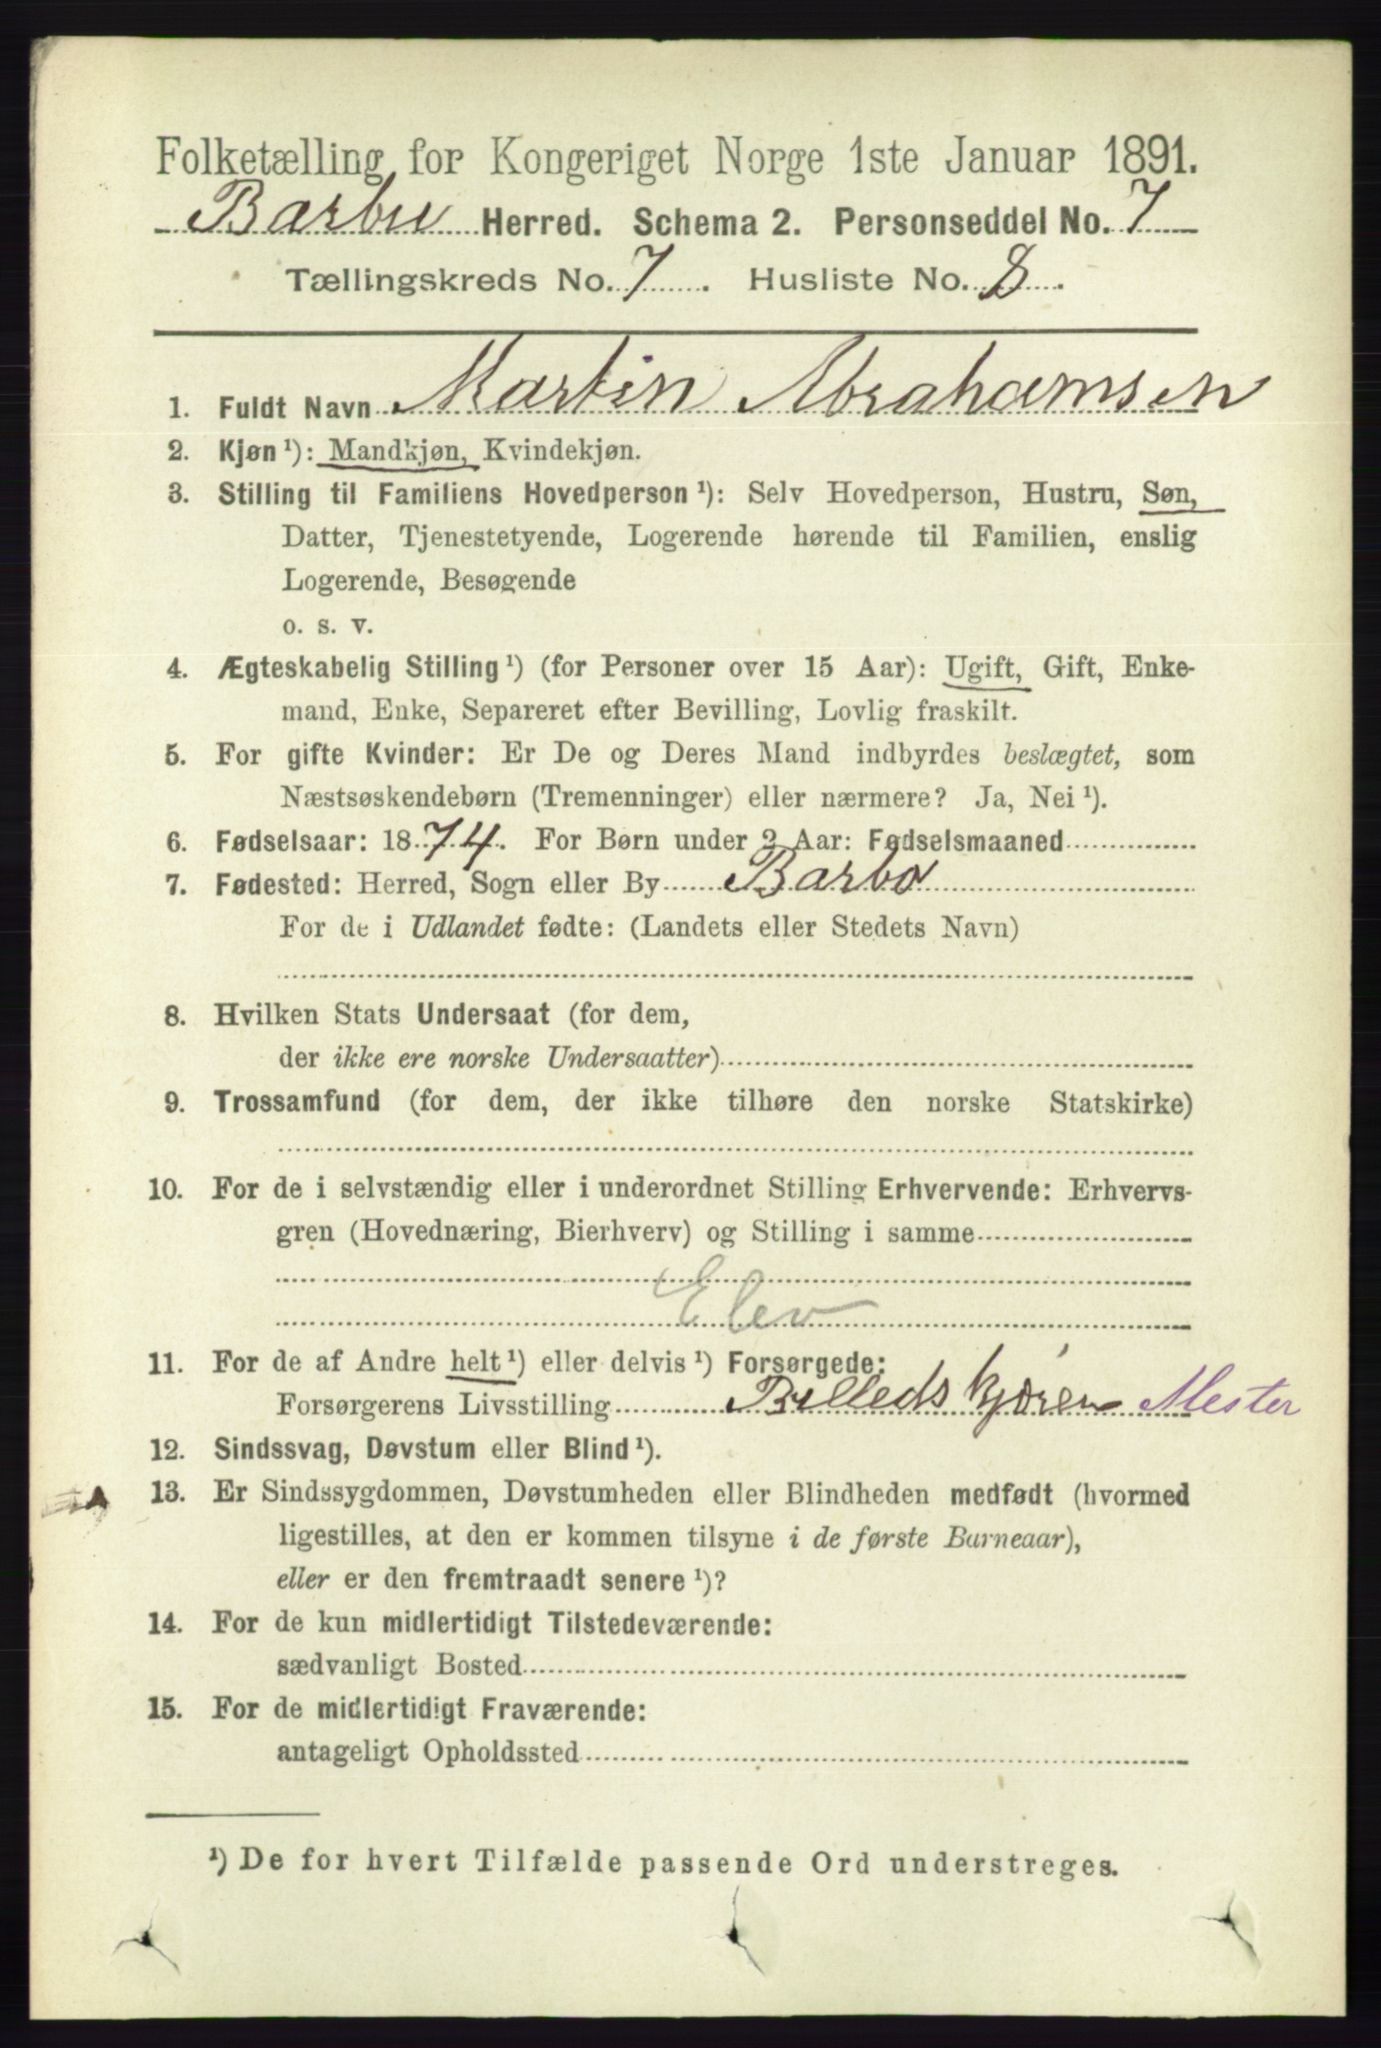 Folketælling for Kongeriget Norge 1ste Januar 1891.
Barbu Herred. Schema 2. Personseddel No. 7
Tællingskreds No. 7. Husliste No. 8.
1. Fuldt Navn Martin Abrahamsen
2. Kjøn¹): Mandkjøn, Kvindekjøn.
3. Stilling til Familiens Hovedperson¹): Selv Hovedperson, Hustru, Søn,
Datter, Tjenestetyende, Logerende hørende til Familien, enslig
Logerende, Besøgende
o. s. v.
4. Ægteskabelig Stilling¹) (for Personer over 15 Aar): Ugift, Gift, Enke-
mand, Enke, Separeret efter Bevilling, Lovlig fraskilt.
5. For gifte Kvinder: Er De og Deres Mand indbyrdes beslægtet, som
Næstsøskendebørn (Tremenninger) eller nærmere? Ja, Nei¹).
6. Fødselsaar: 1874. For Børn under 2 Aar: Fødselsmaaned
7. Fødested: Herred, Sogn eller By Barbo
For de i Udlandet fødte: (Landets eller Stedets Navn)
8. Hvilken Stats Undersaat (for dem,
der ikke ere norske Undersaatter)
9. Trossamfund (for dem, der ikke tilhøre den norske Statskirke)
10. For de i selvstændig eller i underordnet Stilling Erhvervende: Erhvervs-
gren (Hovednæring, Bierhverv) og Stilling i samme
Elev
11. For de af Andre helt¹) eller delvis¹) Forsørgede:
Forsørgerens Livsstilling Billedskjörer Mester
12. Sindssvag, Døvstum eller Blind¹).
13. Er Sindssygdommen, Døvstumheden eller Blindheden medfødt (hvormed
ligestilles, at den er kommen tilsyne i de første Barneaar),
eller er den fremtraadt senere¹)?
14. For de kun midlertidigt Tilstedeværende:
sædvanligt Bosted
15. For de midlertidigt Fraværende:
antageligt Opholdssted
¹) De for hvert Tilfælde passende Ord understreges.